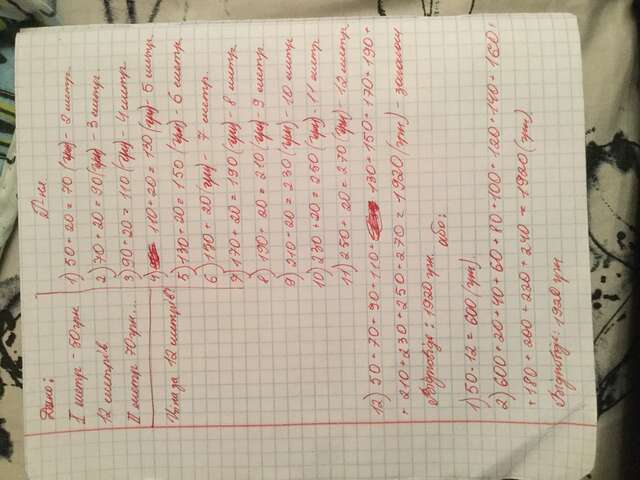 Дано:
І метр - 50 грн
12 метрів
ІІ метр 70 грн...
Ціна за 12 метрів?
П-ня
1) 50 + 20 = 70 (грн) - 2 метр.
2) 70 + 20 = 90 (грн) - 3 метр.
3) 90 + 20 = 110 (грн) - 4 метр
4) 110 + 20 = 130 (грн) - 5 метр
5) 130 + 20 = 150 (грн) - 6 метр
6) 150 + 20 (грн) - 7 метр.
7) 170 + 20 = 190 (грн) - 8 метр
8) 190 + 20 = 210 (грн) - 9 метр
9) 210 + 20 = 230 (грн) - 10 метр
10) 230 + 20 = 250 (грн) - 11 метр
11) 250 + 20 = 270 (грн) - 12 метр
12) 50 + 70 + 90 + 110 + 130 + 150 + 170 + 190 +
+ 210 + 230 + 250 + 270 = 1920 (грн) - загалом
Відповідь: 1920 грн.
або:
1) 50 · 12 = 600 (грн)
2) 600 + 20 + 40 + 60 + 80 + 100 + 120 + 140 + 160 +
+ 180 + 200 + 220 + 240 = 1920 (грн)
Відповідь: 1920 грн